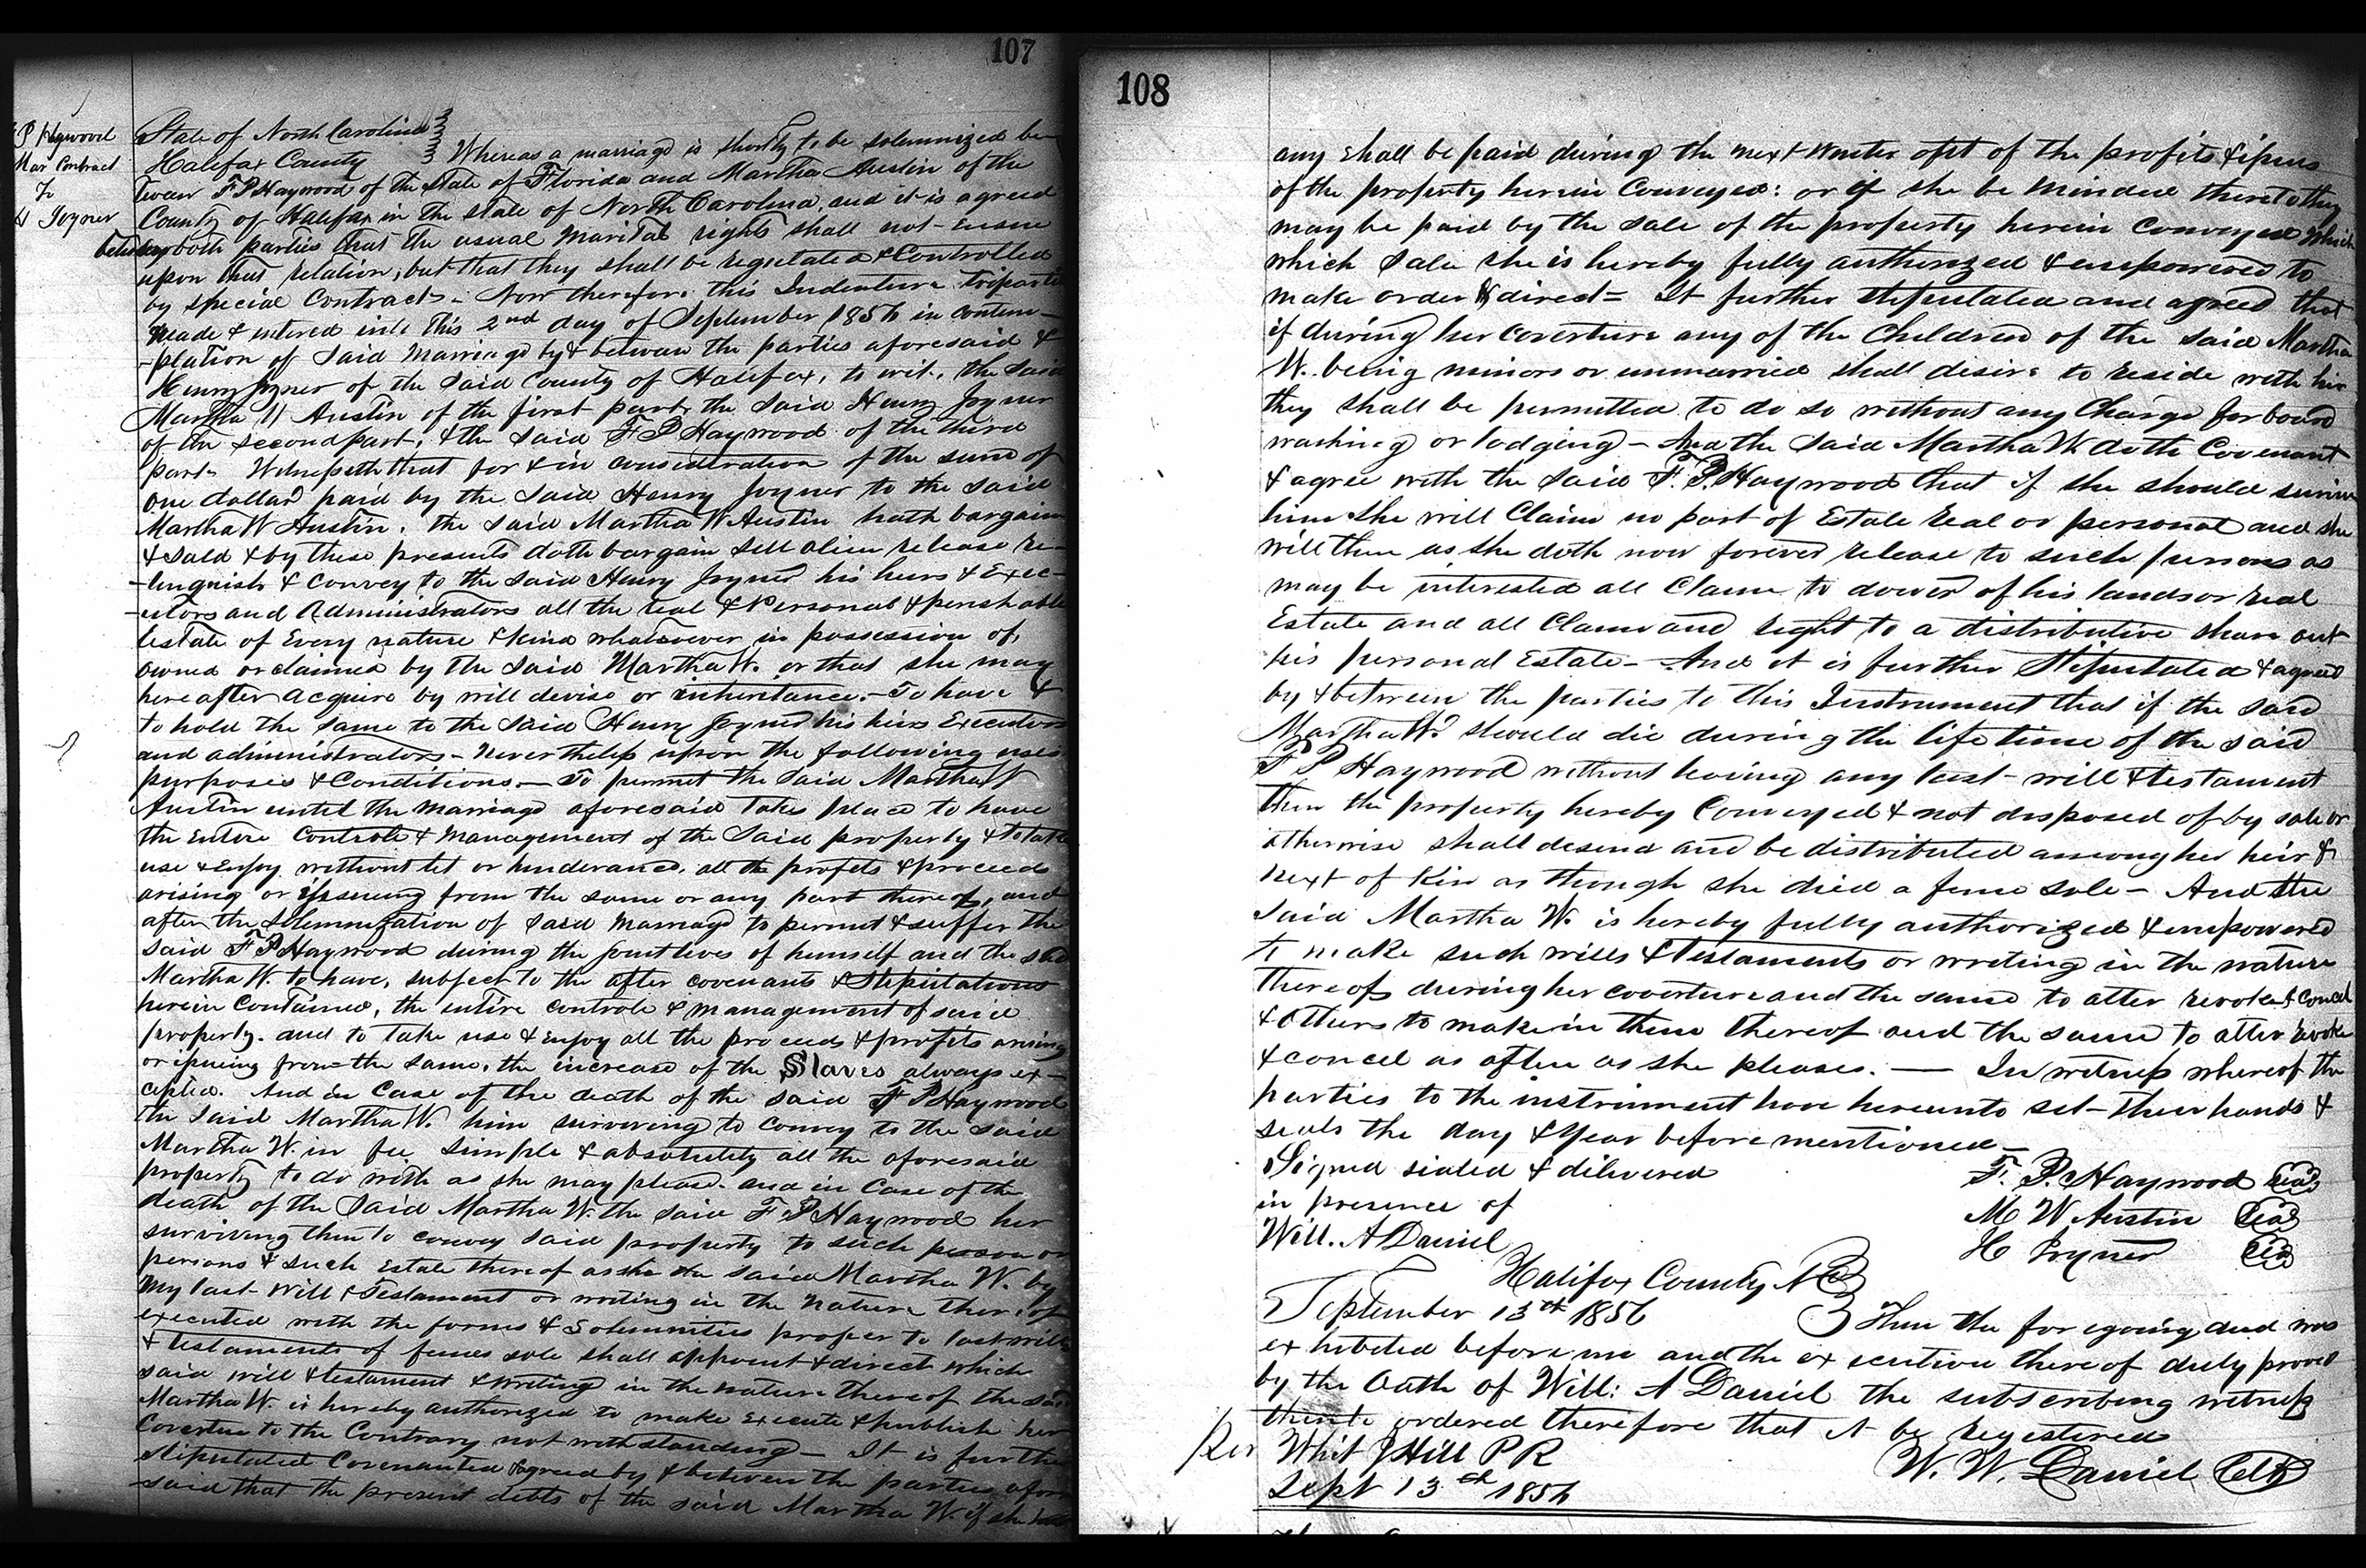 107
P Haywood
Mar Contract
To
H Joyner
State of North Carolina
Halifax County Whereas a marriage is shortly to be solemnized be
tween F P Haywood of the State of Florida and Martha Austin of the
County of Halifax in the state of North Carolina, and it is agreed
by both parties that the usual marital rights shall not ensue
upon that relation, but that they shall be regulated & Controlled
by special Contract - Now therefore this Indenture triparti
made & entered into this 2nd day of September 1856 in contem-
-plation of said marriage by & between the parties aforesaid &
Henry Joyner of the said County of Halifax, to wit, the said
Martha W Austin of the first part, the said Henry Joyner
of the second part, & the said F P Haywood of the third
part. Witnesseth that for & in consideration of the sum of
one dollar paid by the said Henry Joyner to the said
Martha W Austin, the said Martha W Austin hath bargain
& sold & by these presents doth bargain sell alien release re-
-linquish & convey to the said Henry Joyner his heirs & Exec-
-utors and Administrators all the real & Personal & perishable
Estate of Every nature & kind whatsoever in possession of,
owned or claimed by the said Martha W. or that she may
hereafter acquire by will devise or inheritance. - To have &
to hold the same to the said Henry Joyner his heirs Executors
and administrators - Nevertheless upon the following uses
purposes & Conditions. - To permit the said Martha W
Austin until the marriage aforesaid takes place to have
the entire controle & management of the said property & to take
use & enjoy without let or hinderance, all the profits & proceeds
arising or issueing from the same or any part thereof, and
after the solemnization of said marriage to permit & suffer the
said F P Haywood during the joint lives of himself and the said
Martha W. to have, subject to the after covenants & Stipulations
herein contained, the entire controle & management of said
property. and to take use & enjoy all the proceeds & profits arising
or issuing from the same, the increase of the Slaves always ex-
cepted. And in Case of the death of the said F P Haywood
the said Martha W. him surviving to convey to the said
Martha W. in fee simple & absolutely all the aforesaid
property to do with as she may please. and in Case of the
death of the said Martha W. the said F. P Haywood her
surviving then to convey said property to such person or
persons & such estate thereof as she the said Martha W. by
my last Will & Testament or writing in the nature thereof
executed with the forms & solemnities proper to last wills
& testaments of femes sole shall appoint & direct which
said will & testament & writing in the nature thereof the said
Martha W. is hereby authorized to make execute & publish her
Coverture to the Contrary notwithstanding - It is further
stipulated Covenanted & agreed by & between the parties afore
said that the present debts of the said Martha W. if she
108
any shall be paid during the next Winter out of the profits & issues
of the property herein Conveyed: or if she be minded thereto they
may be paid by the sale of the property herein Conveyed which
which sale she is hereby fully authorized & empowered to
make order & direct = It further stipulated and agreed that
if during her coverture any of the Children of the said Martha
W. being minors or unmarried shall desire to reside with her
they shall be permitted to do so without any Charge for board
washing or lodging - And the said Martha W. doth Covenant
& agree with the said F. P. Haywood that if she should survive
him she will Claim no part of Estate real or personal and she
will then as she doth now forever release to such persons as
may be interested all Claim to dower of his lands or real
Estate and all Claim and right to a distributive share out
his personal Estate - And it is further Stipulated & agreed
by & between the parties to this Instrument that if the said
Martha W. should die during the life time of the said
F P Haywood without leaving any last will & testament
then the property hereby Conveyed & not disposed of by sale or
otherwise shall desend and be distributed among her heir &
next of Kin as though she died a feme sole - And the
said Martha W. is hereby fully authorized & empowered
to make such wills & testaments or writing in the nature
thereof during her coverture and the same to alter revoke & Concel
& others to make in them thereof and the same to alter revoke
& concel as often as she pleases. - In witness whereof the
parties to the instrument have hereunto set their hands &
seals the day & Year before mentioned -
Signed sealed & delivered F. P. Haywood Seal
in presence of M W Austin Seal
Will. A Daniel H Joyner Seal
Halifax County N C
September 13th 1856 Then the foregoing deed was
exhibited before me and the execution thereof duly proved
by the Oath of Will: A Daniel the subscribing witness
thereto ordered therefore that it be registered
Per Whit J Hill P R W. W. Daniel Clk
Sept 13th 1856